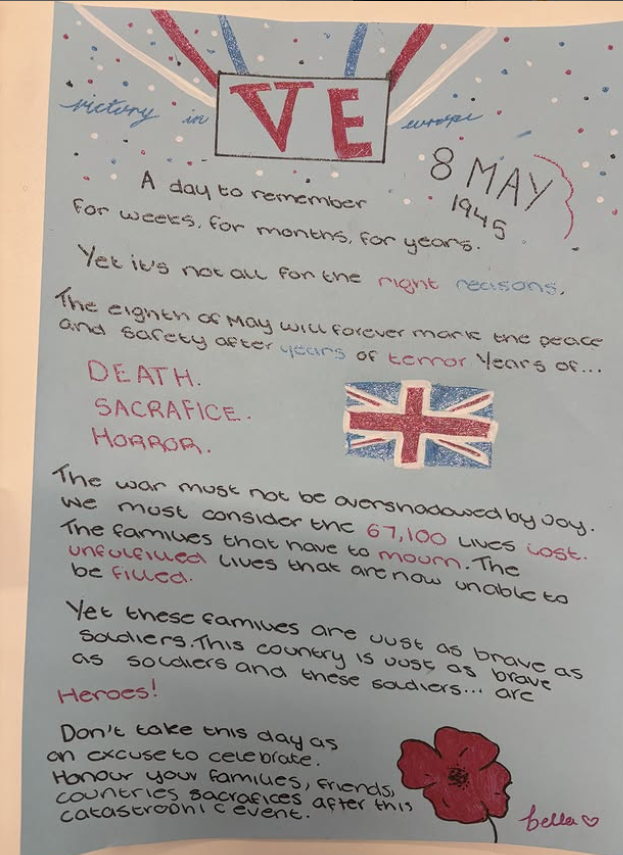 VE
victory in europe
8 MAY
1945
A day to remember
for weeks, for months, for years.
Yet it's not all for the right reasons.
The eighth of May will forever mark the peace
and safety after years of terror Years of...
DEATH.
SACRAFICE.
HORROR.
The war must not be overshadowed by Joy.
We must consider the 67,100 lives lost.
The families that have to mourn. The
unfulfilled lives that are now unable to
be filled.
Yet these families are Just as brave as
soldiers. This country is Just as brave
as soldiers and these soldiers... are
Heroes!
Don't take this day as
an excuse to celebrate.
Honour your families, friends,
countries sacrafices after this
catastrophic event.
bella